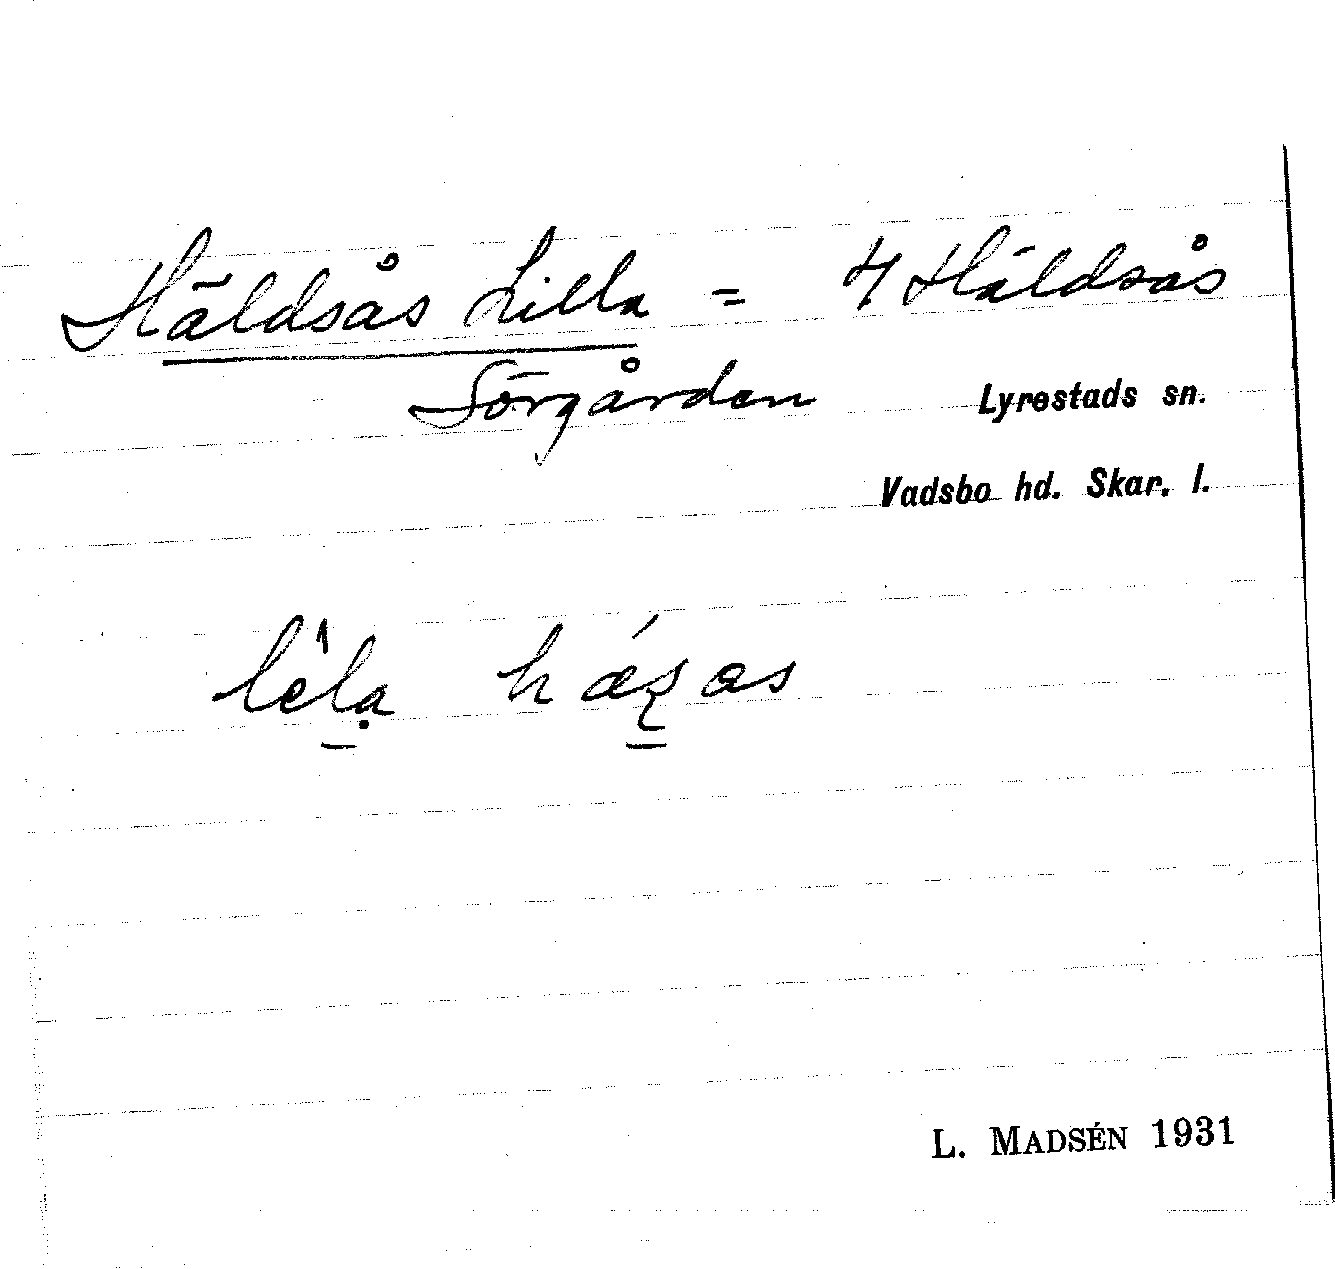 Häldsås Lilla = 4 Häldsås
Sörgården
Lyrestads sn.
Vadsbo hd. Skar. l.
L. MADSÉN 1931